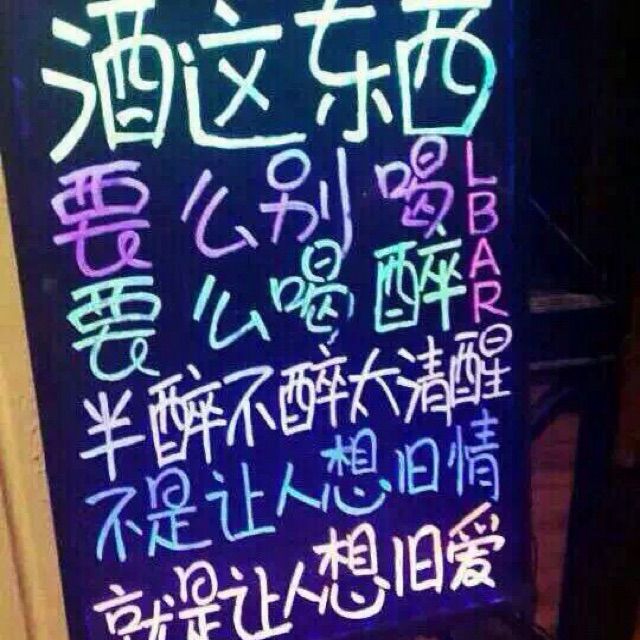 酒这东西
要么别喝
要么喝醉
LBAR
半醉不醉太清醒
不是让人想旧情
就是让人想旧爱